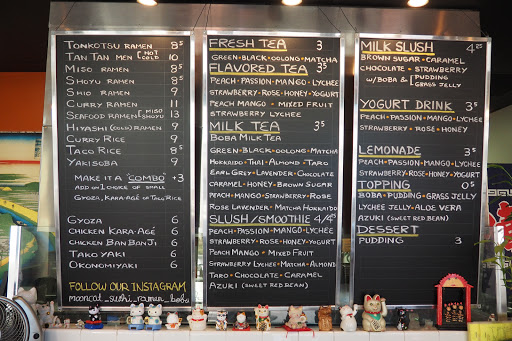 TONKOTSU RAMEN 8⁵
TAN TAN MEN [HOT COLD 10
MISO RAMEN 8⁵
SHOYU RAMEN 8⁵
SHIO RAMEN 9
CURRY RAMEN 11
SEAFOOD RAMEN [MISO SHOYU 13
HIYASHI (COLD) RAMEN 9
CURRY RICE 9
TACO RICE 8⁵
YAKISOBA 9
MAKE IT A "COMBO" +3
ADD ON 1 CHOICE OF SMALL
GYOZA, KARA-AGE OR TACO RICE
GYOZA 6
CHICKEN KARA-AGÉ 6
CHICKEN BAN BAN JI 6
TAKO YAKI 6
OKONOMIYAKI 6
FOLLOW OUR INSTAGRAM
mooncat_sushi_ramen_boba
FRESH TEA 3
GREEN·BLACK·OOLONG·MATCHA
FLAVORED TEA 3⁵
PEACH·PASSION·MANGO·LYCHEE
STRAWBERRY·ROSE·HONEY·YOGURT
PEACH MANGO · MIXED FRUIT
STRAWBERRY LYCHEE
MILK TEA 3⁵
BOBA MILK TEA
GREEN·BLACK·OOLONG·MATCHA
HOKKAIDO·THAI·ALMOND·TARO
EARL GREY·LAVENDER·CHOCOLATE
CARAMEL·HONEY·BROWN SUGAR
PEACH·MANGO·STRAWBERRY·ROSE
ROSE LAVENDER·MATCHA HOKKAIDO
SLUSH/SMOOTHIE 4/4²⁵
PEACH·PASSION·MANGO·LYCHEE
STRAWBERRY·ROSE·HONEY·YOGURT
PEACH MANGO · MIXED FRUIT
STRAWBERRY LYCHEE·MATCHA·ALMOND
TARO·CHOCOLATE·CARAMEL
AZUKI (SWEET RED BEAN)
MILK SLUSH 4²⁵
BROWN SUGAR·CARAMEL
CHOCOLATE·STRAWBERRY
W/BOBA & [PUDDING
GRASS JELLY
YOGURT DRINK 3⁵
PEACH·PASSION·MANGO·LYCHEE
STRAWBERRY·ROSE·HONEY
LEMONADE 3⁵
PEACH·PASSION·MANGO·LYCHEE
STRAWBERRY·ROSE·YOGURT
TOPPING 0⁵
BOBA·PUDDING·GRASS JELLY
LYCHEE JELLY·ALOE VERA
AZUKI (SWEET RED BEAN)
DESSERT
PUDDING 3